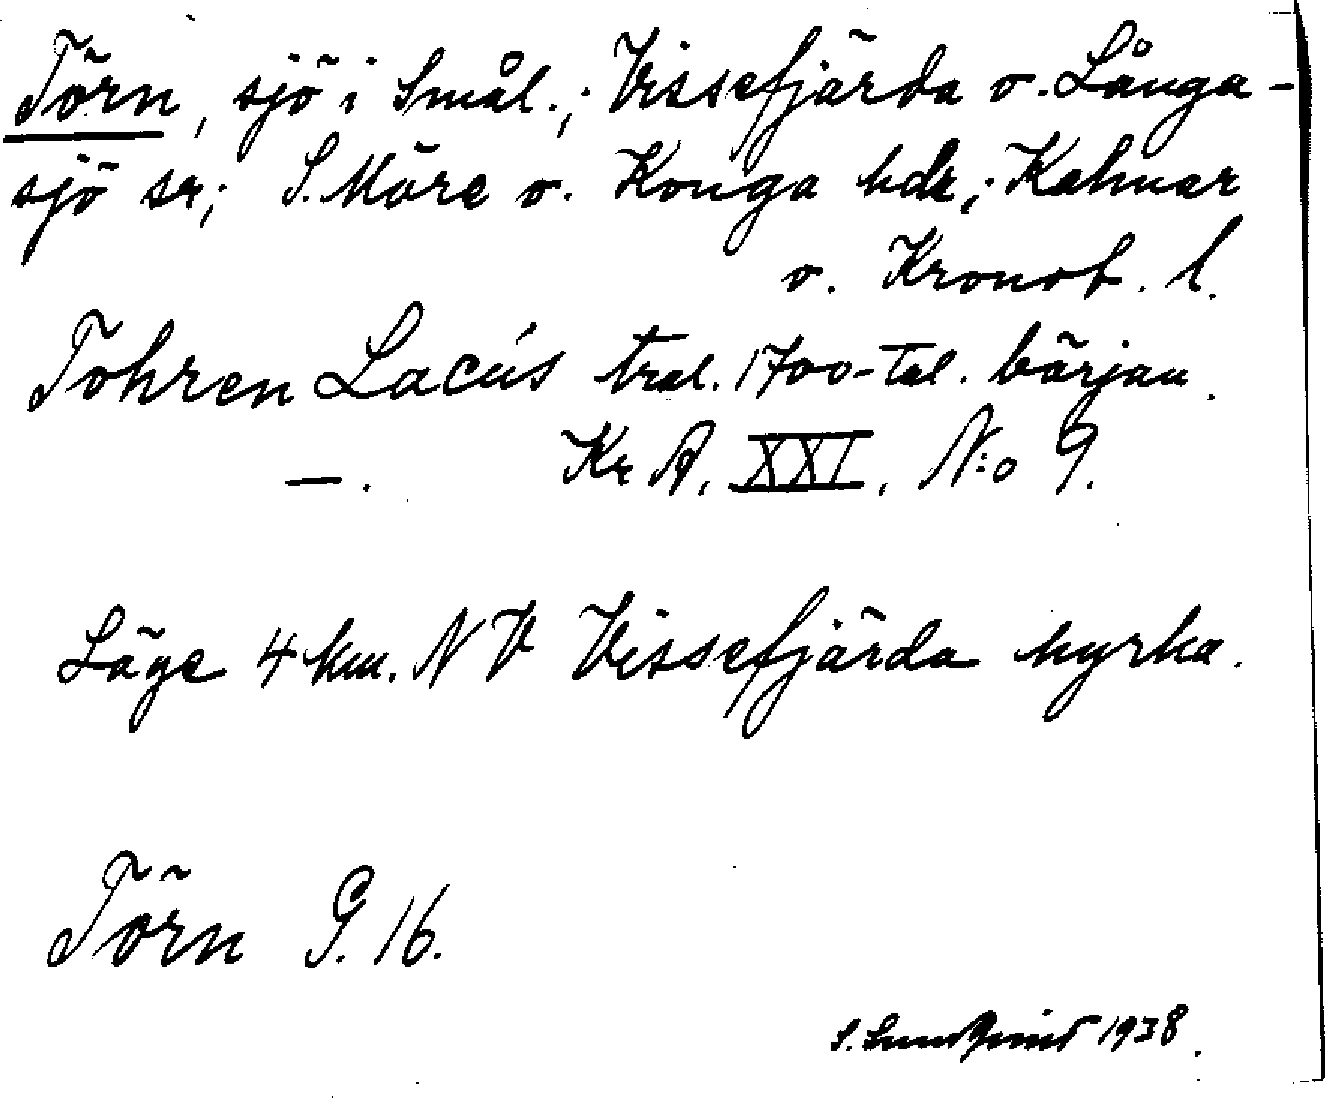 Törn, sjö i Smål.; Vissefjärda o. Långa-
sjö sr; S. Möre o. Konga hdr; Kalmar
o. Kronob. l.
Tohren Lacus trol. 1700-tal. början.
—. Kr A. XXI, N:o 9.
Läge 4 km. N V Vissefjärda kyrka.
Törn G. 16.
S. Lundqvist 1938.